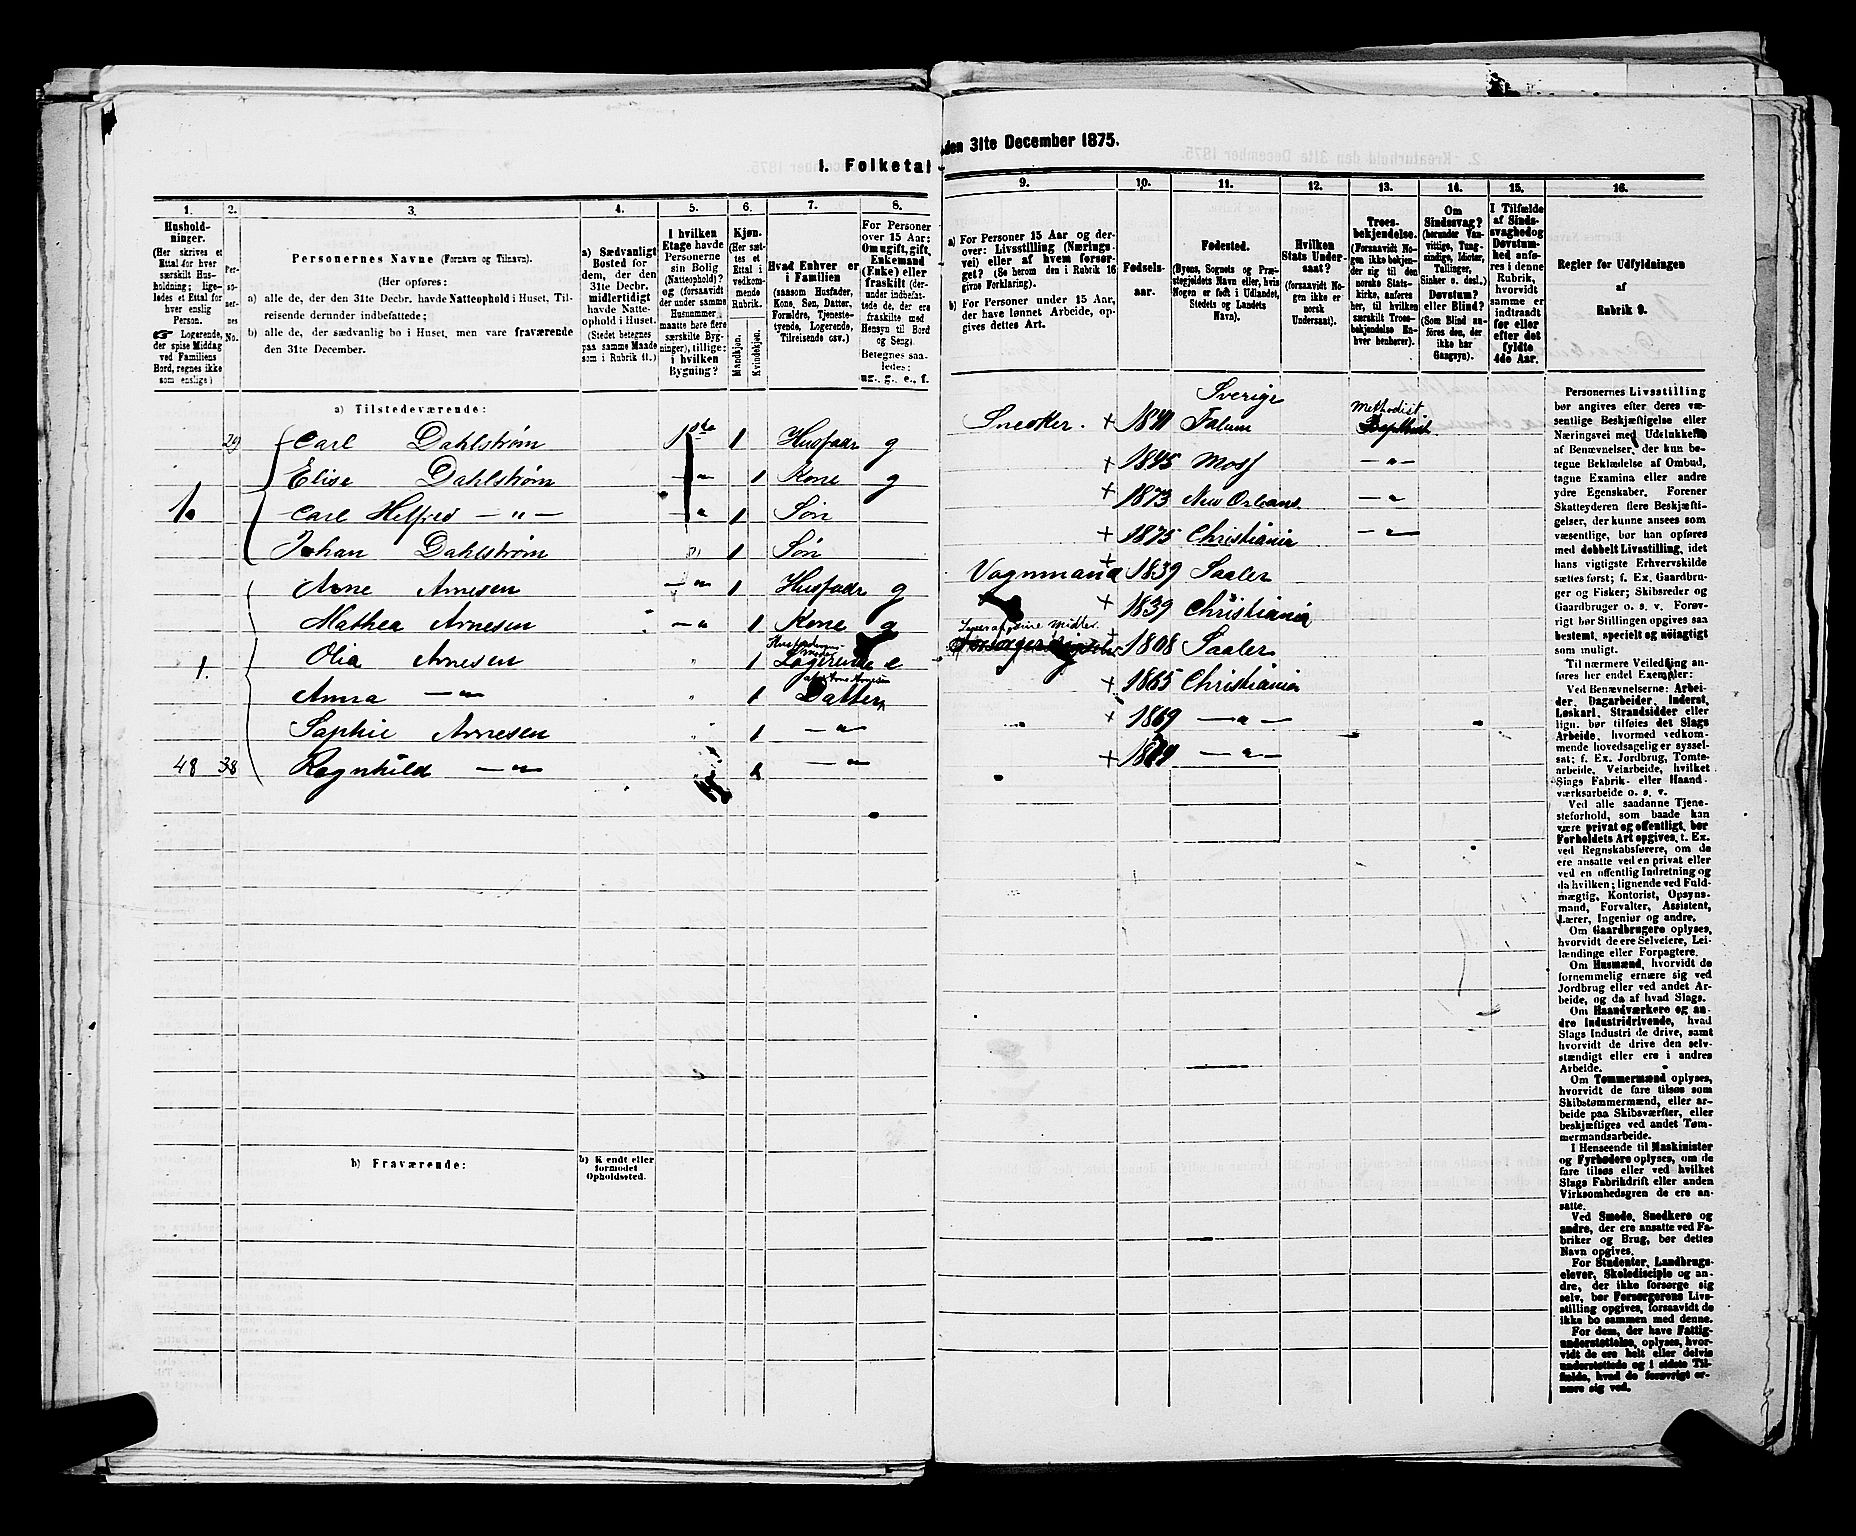 1. Folketal
den 31te December 1875.
1.
Husholdninger.
(Her skrives et Ettal for hver særskilt Husholdning; ligeledes et Ettal for hver enslig Person.
Logerende, der spise Middag ved Familiens Bord, regnes ikke som enslige.)
2.
Personernes No.
3.
Personernes Navne (Fornavn og Tilnavn).
(Her opføres:
a) alle de, der den 31te Decbr. havde Natteophold i Huset, Tilreisende derunder indbefattede;
b) alle de, der sædvanlig bo i Huset, men vare fraværende den 31te December.
4.
a) Sædvanligt Bosted for dem, der den 31te Decbr. midlertidigt havde Natteophold i Huset.
(Stedet betegnes paa samme Maade som i Rubrik 11.)
5.
I hvilken Etage havde Personerne sin Bolig (Natteophold)? og (forsaavidt der under samme Husnummer maatte høre flere særskilte Bygninger), tillige: i hvilken Bygning?
6.
Kjøn.
(Her sættes et Ettal i vedkommende Rubrik.
Mandkjøn. Kvindekjøn.
7.
Hvad Enhver er i Familien
(saasom Husfader, Kone, Søn, Datter, Forældre, Tjenestetyende, Logerende, Tilreisende osv.)
8.
For Personer over 15 Aar: Om ugift, gift, Enkemand (Enke) eller fraskilt (derunder indbefattede de, der ere fraskilte med Hensyn til Bord og Seng).
Betegnes saaledes: ug., g., e., f.
9.
a) For Personer 15 Aar og derover: Livsstilling (Næringsvei) eller af hvem forsørget? (Se herom den i Rubrik 16 givne Forklaring).
b) For Personer under 15 Aar, der have lønnet Arbeide, opgives dettes Art.
10.
Fødselsaar.
11.
Fødested.
(Byens, Sognets og Præstegjeldets Navn eller, hvis Nogen er født i Udlandet, Stedets og Landets Navn).
12.
Hvilken Stats Undersaat?
(forsaavidt Nogen ikke er norsk Undersaat).
13.
Troesbekjendelse.
(Forsaavidt Nogen ikke bekjender sig til den norske Statskirke, anføres her, til hvilken særskilt Troesbekjendelse Enhver henhører).
14.
Om Sindssvag? (herunder Vanvittige, Tungsindige, Idioter, Tullinger, Sinker o. desl.) Døvstum? eller Blind? (Som Blind anføres den, der ikke har Gangsyn).
15.
I Tilfælde af Sindssvaghed og Døvstumhed anføres i denne Rubrik, hvorvidt samme er indtraadt før eller efter det fyldte 4de Aar.
16.
Regler for Udfyldningen af Rubrik 9.
a) Tilstedeværende:
29 Carl Dahlstrøm 1ste 1 Husfader g Snedker. + 1841 Sverige Falun Methodist
Elise Dahlstrøm — " 1 Kone g + 1845 Moss — " —
1. Carl Helfred — " — — " 1 Søn + 1873 New Orleans — " —
Johan Dahlstrøm " 1 Søn + 1875 Christiania — " —
Arne Arnesen — " 1 Husfader g Vognmand + 1839 Saaler
Mathea Arnesen — " 1 Kone g + 1839 Christiania
1. Olia Arnesen 1 Logerende e + 1808 Saaler
Anna — " — 1 Datter + 1865 Christiania
Sophie Arnesen 1 — " — + 1869 — " —
48 38 Ragnhild — " — 1 — " — + — " —
b) Fraværende:
b) Kjendt eller formodet Opholdssted.
Personernes Livsstilling
bør angives efter deres væ-
sentlige Beskjæftigelse eller
Næringsvei med Udelukkelse
af Benævnelser, der kun be-
tegne Beklædelse af Ombud,
tagne Examina eller andre
ydre Egenskaber. Forener
Skatteyderen flere Beskjæfti-
gelser, der kunne ansees som
væsentlige, bør han opføres
med dobbelt Livsstilling, idet
hans vigtigste Erhvervskilde
sættes først; f. Ex. Gaardbru-
ger og Fisker; Skibsreder og
Gaardbruger o. s. v. Forøv-
rigt bør Stillingen opgives saa
bestemt, specielt og nøiagtigt
som muligt.
Til nærmere Veiledning an-
føres her endel Exempler:
Ved Benævnelserne: Arbei-
der, Dagarbeider, Inderst,
Løskarl, Strandsidder eller
lign. bør tilføies det Slags
Arbeide, hvormed vedkom-
mende hovedsagelig er syssel-
sat; f. Ex. Jordbrug, Tomte-
arbeide, Veiarbeide, hvilket
Slags Fabrik- eller Haand-
værksarbeide o. s. v.
Ved alle saadanne Tjene-
steforhold, som baade kan
være privat og offentligt, bør
Forholdets Art opgives, t. Ex.
ved Regnskabsførere, om de
ere ansatte ved en privat eller
ved en offentlig Indretning og
da hvilken; lignende ved Fuld-
mægtig, Kontorist, Opsyns-
mand, Forvalter, Assistent,
Lærer, Ingeniør og andre.
Om Gaardbrugere oplyses,
hvorvidt de ere Selveiere, Lei-
lændinge eller Forpagtere.
Om Husmænd, hvorvidt de
fornemmelig ernære sig ved
Jordbrug eller ved andet Ar-
beide, og da af hvad Slags.
Om Haandværkere og an-
dre Industridrivende, hvad
Slags Industri de drive, samt
hvorvidt de drive den selv-
stændigt eller ere i andres
Arbeide.
Om Tømmermænd oplyses,
hvorvidt de fare tilsøs som
Skibstømmermænd, eller ar-
beide paa Skibsværfter, eller
beskjæftiges ved andet Tøm-
mermandsarbeide.
I Henseende til Maskinister
og Fyrbødere oplyses, om de
fare tilsøs eller ved hvilket
Slags Fabrikdrift eller anden
Virksomhedsgren de ere an-
satte.
Ved Smede, Snedkere og
andre, der ere ansatte ved Fa-
briker og Brug, bør dettes
Navn opgives.
For Studenter, Landbrugs-
elever, Skoledisciple og an-
dre, der ikke forsørge sig
selv, bør Forsørgerens Livs-
stilling opgives, forsaavidt de
ikke bo sammen med denne.
For dem, der have Fattig-
understøttelse, oplyses, hvor-
vidt de ere helt eller delvis
understøttede og i sidste Til-
fælde, hvad de forøvrigt er-
nære sig ved.